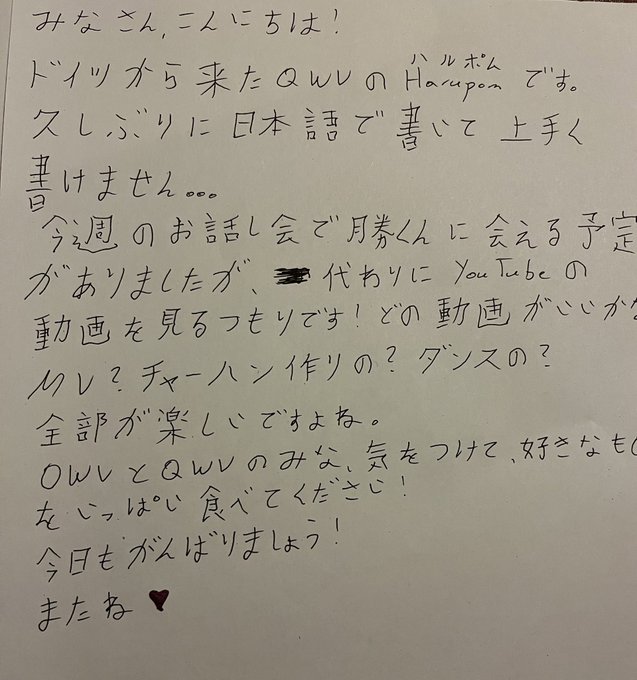 みなさん、こんにちは！
ドイツから来たQWVのHarupomハルポムです。
久しぶりに日本語で書いて上手く
書けません...
今週のお話し会で勝くんに会える予定
がありましたが、代わりにYouTubeの
動画を見るつもりです！どの動画がいいかな
MV？チャーハン作りの？ダンスの？
全部が楽しいですよね。
OWVとQWVのみな、気をつけて、好きなもの
をいっぱい食べてください！
今日もがんばりましょう！
またね♥